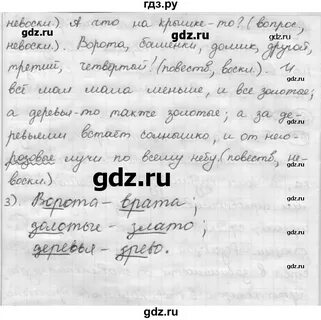 гдз.ру
невоскл.) А что на крышке-то? (вопрос,
невоскл.). Ворота, башенки, домик, другой,
третий, четвертый! (повеств, воскл.). И
всё мал мала меньше, и все золотые;
а деревья-то также золотые; а за де-
ревьями встаёт солнышко, и от него
розовые лучи по всему небу. (повеств, не-
воскл.)
gdz.ru
3). Ворота - врата;
золотые - злато;
деревья - древо.
gdz.ru
gdz.ru